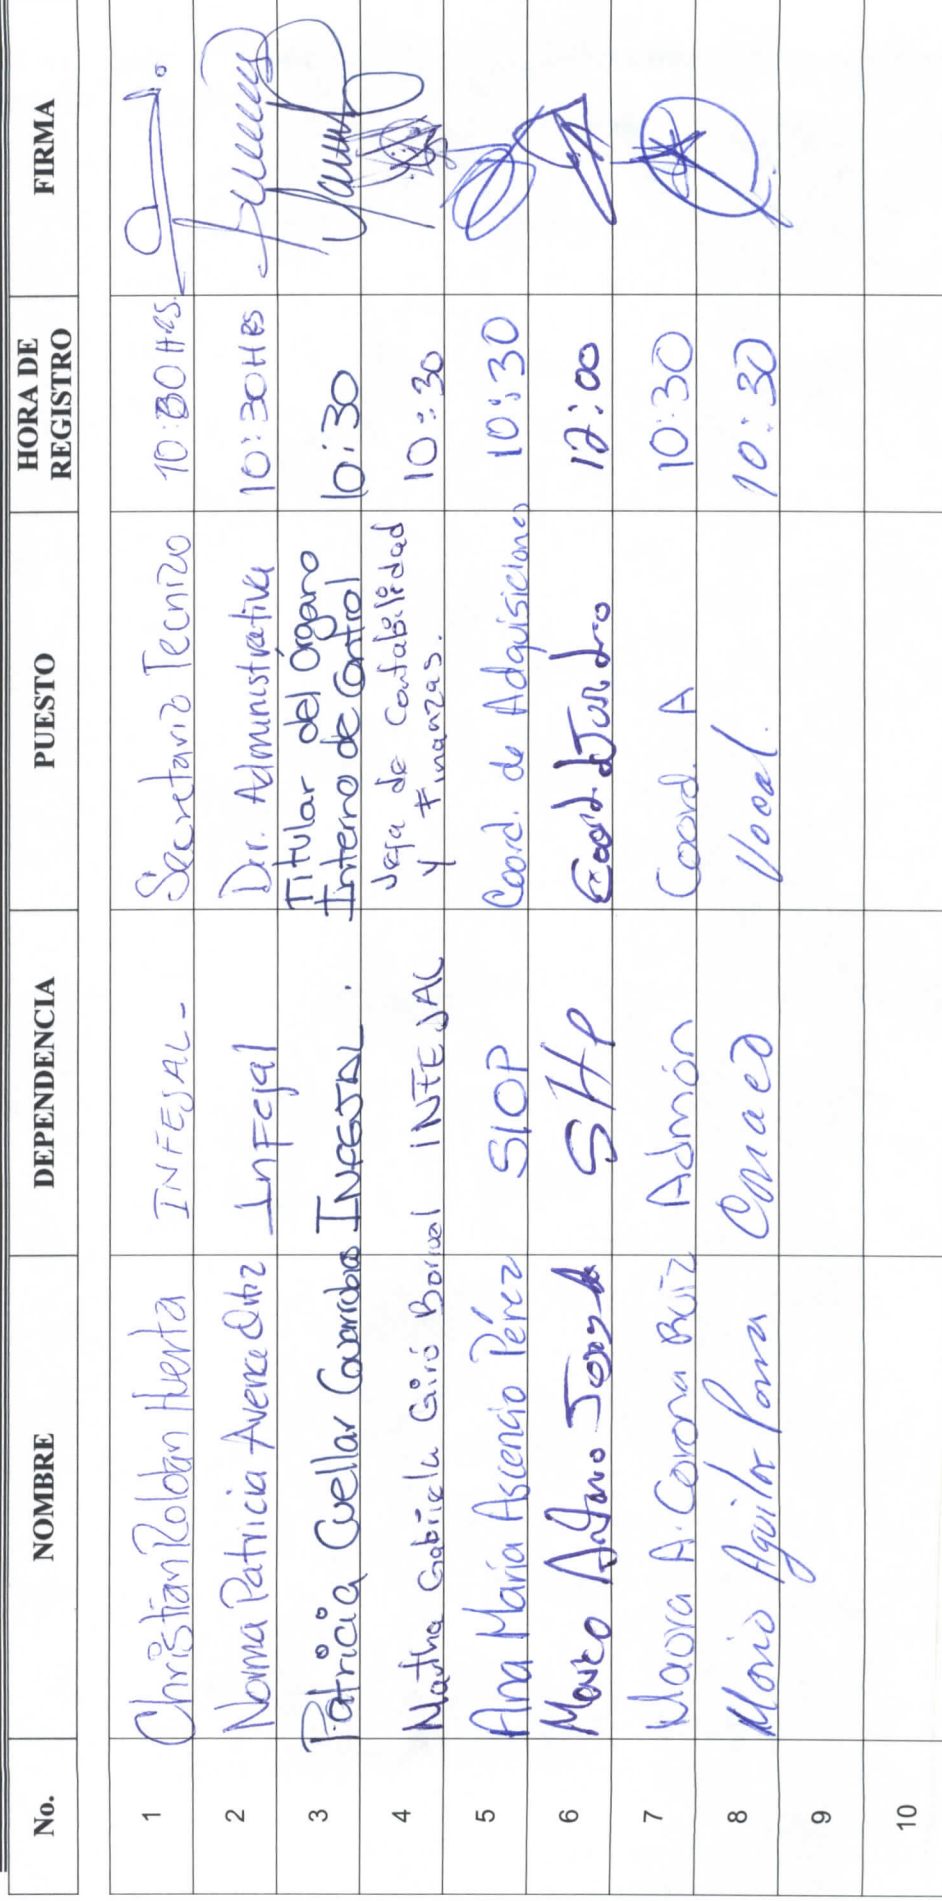 No. NOMBRE DEPENDENCIA PUESTO HORA DE REGISTRO FIRMA
1 Christian Roldan Huerta INFEJAL- Secretario Tecnico 10:30 Hrs.
2 Norma Patricia Avence Ortiz Infejal Dir. Administrativa 10:30 HRS
3 Patricia Cuellar Covarrubias INFEJAL. Titular del Órgano Interno de Control 10:30
4 Martha Gabriela Giró INFEJAL Jefa de Contabilidad y Finanzas. 10:30
5 Ana María Ascencio Pérez SIOP Coord. de Adquisiciones 10:30
6 Marco SHP 12:00
7 A. Corona Ruiz Admón Coord. A 10:30
8 Mario Aguilar Vocal. 10:30
9
10